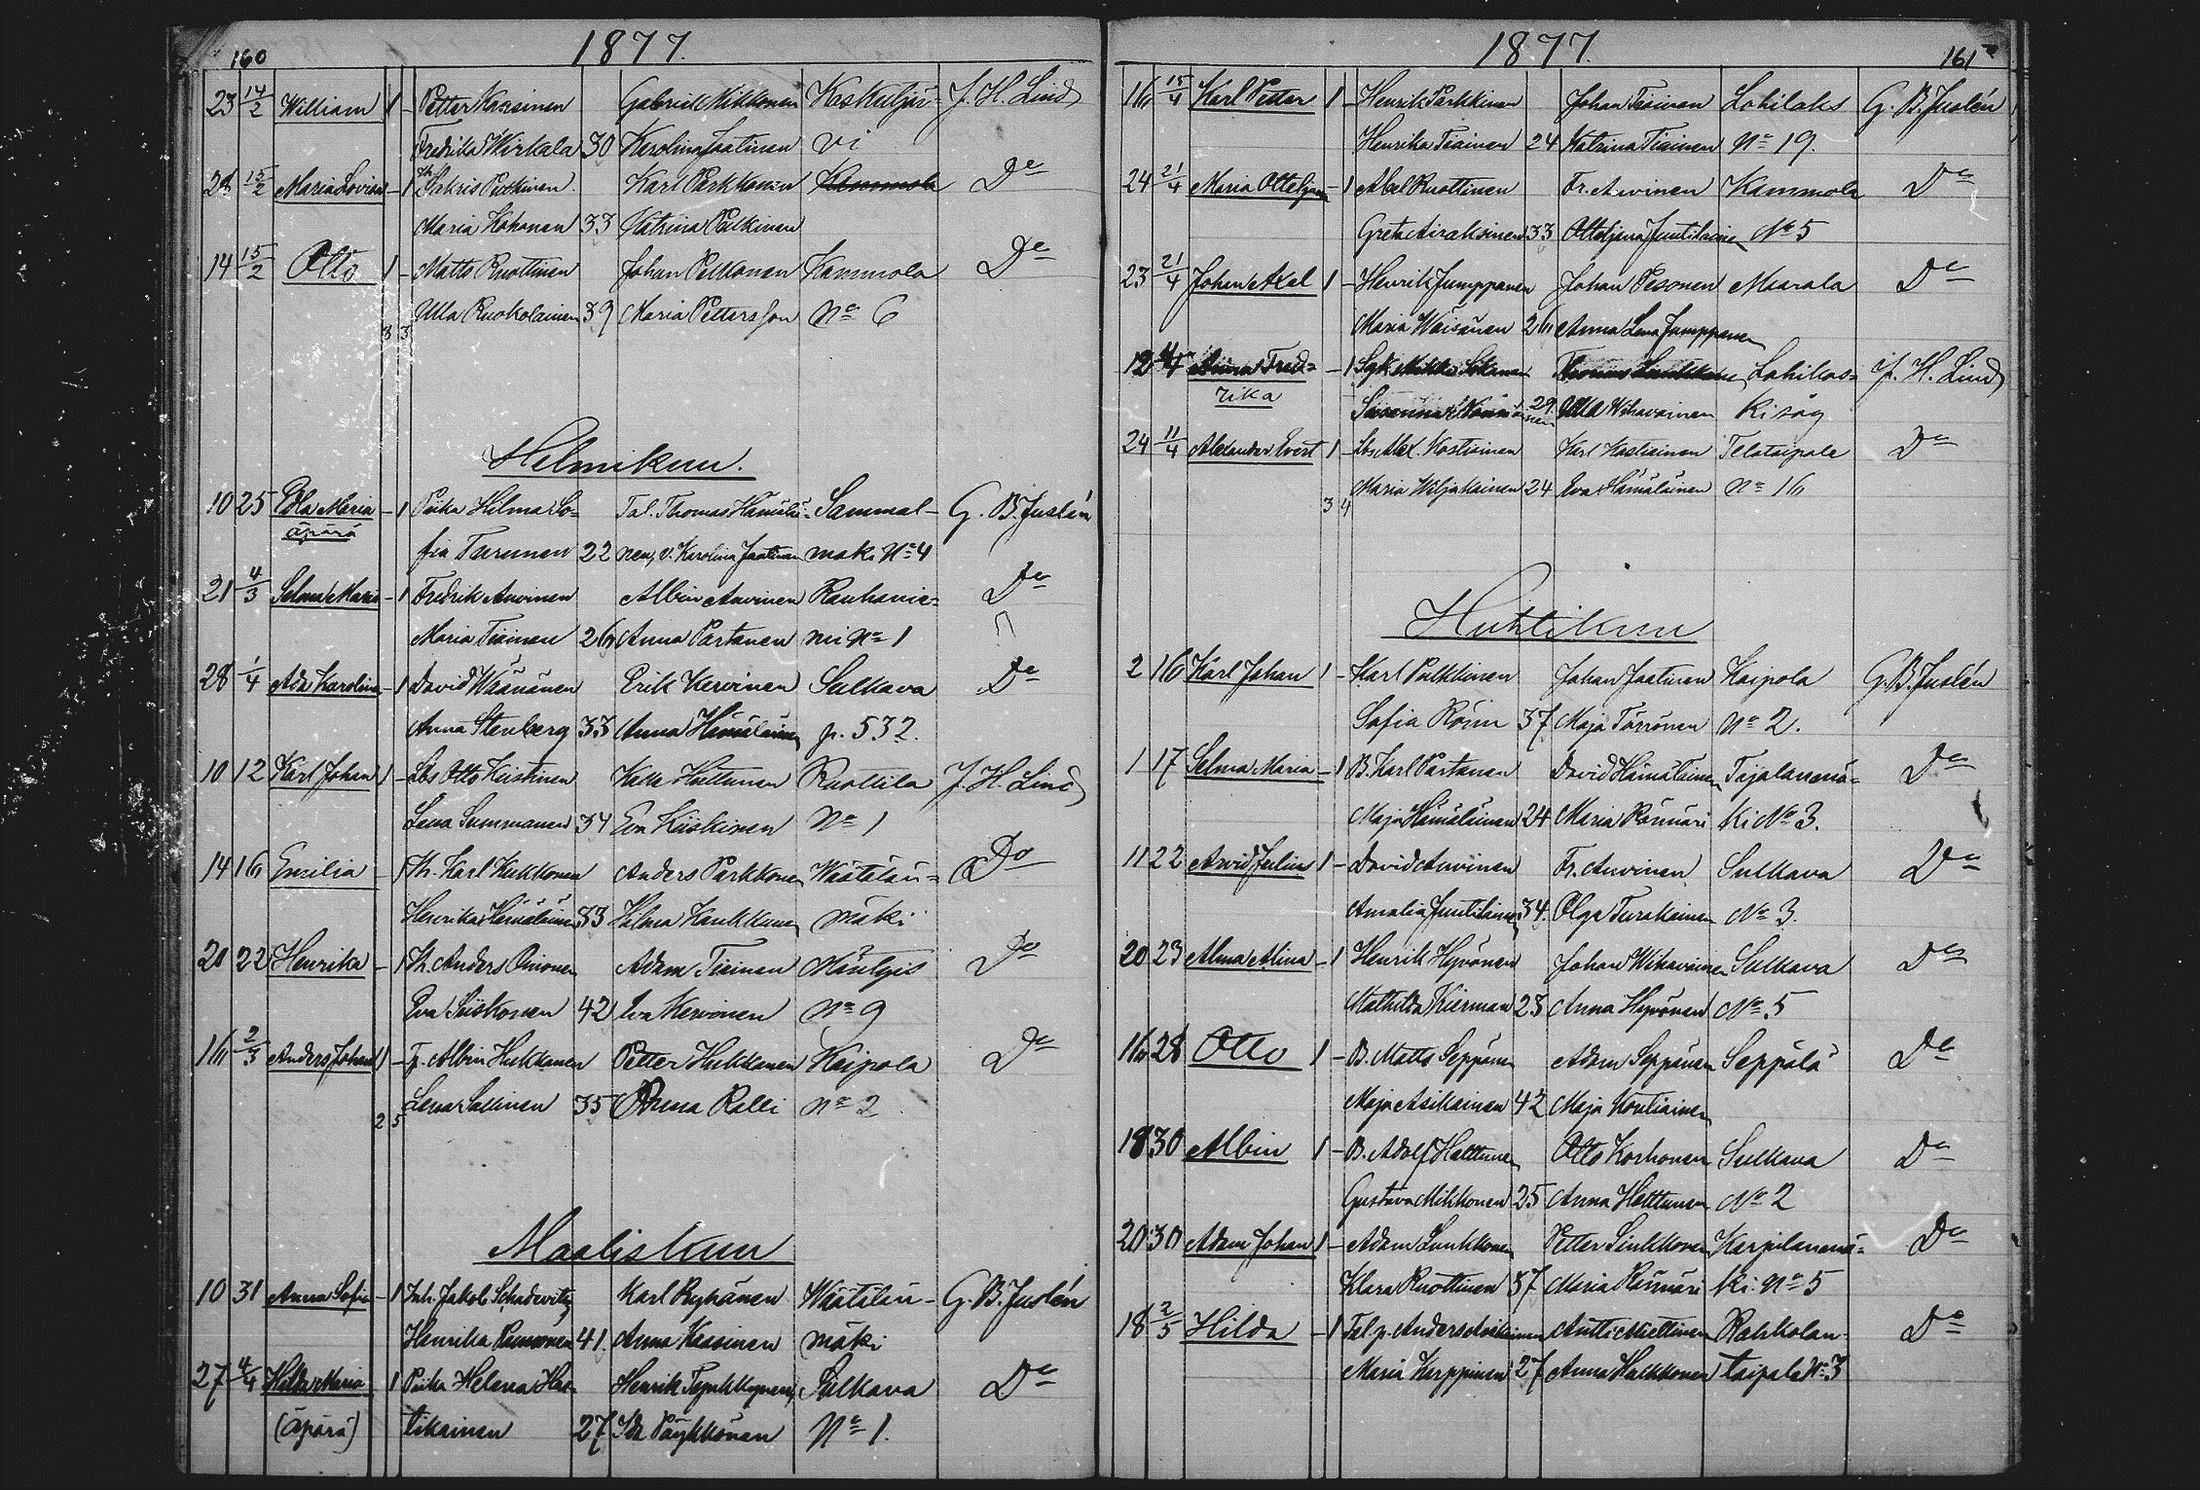 160
1877.
23 14/2 William 1 - Petter Kaasinen Gabriel Mikkonen Kaskuljär= J. H. Lind
Fredrika Wirkala 30 Karolina Jaatinen vi
28 15/2 Maria Lovisa - 1 Zakris Pulkinen Karl Parkkonen Kammola Do
Maria Kohonen 33 Katrina Pulkinen
14 15/2 Otto 1 - Matts Ruottinen Johan Pelkonen Kammola Do
Ulla Ruokolainen 39 Maria Pettersson No 6
8 3
Helmikuu.
10 25 Ida Maria - 1 Piika Hilma So= Tal. Thomas Hämäläi= Sammal- G. B. Juslén
äpärä fia Turunen 22 nen, v. Karolina Jaatinen mäki No 4
21 4/3 Selma Maria - 1 Fredrik Auvinen Albin Auvinen Rauhanie= Do
Maria Tiainen 26 Anna Partanen mi No 1
28 1/4 Ada Karolina - 1 David Wäänänen Erik Kervinen Sulkava Do
Anna Stenberg 33 Anna Hämäläinen p. 532.
10 12 Karl Johan 1 - Lbs Otto Kiiskinen Kalle Hattunen Ruottila J. H. Lind
Lena Summanen 34 Eva Kiiskinen No 1
14 16 Emilia - 1 Th. Karl Kukkonen Anders Parkkonen Wäätälän= Do
Henrika Hämäläinen 33 Hilma Kaukkunen mäki
20 22 Henrika - 1 Th. Anders Oinonen Adam Tiainen Mäntyjs Do
Eva Siiskonen 42 Eva Kervonen No 9
16 2/3 Anders Johan 1 - Tp. Albin Hukkanen Petter Hukkanen Kaipola Do
Lena Sallinen 35 Anna Ralli No 2
2 5
Maaliskuu
10 31 Anna Sofia - 1 Inh. Jakob Schadevitz Karl Ryhänen Wäätälän- G. B. Juslén
Henrika Paunonen 41 Anna Kaasinen mäki
27 4/4 Hilda Maria 1 Piika Helena Has= Henrik Tynkkynen, Sulkava Do
(äpärä) tikainen 27 Ida Pöyhkönen No 1.
1877.
161
16 15/4 Karl Petter 1 - Henrik Parkkinen Johan Tiainen Lohilaks G. B. Juslén
Henrika Tiainen 24 Katrina Tiainen No 19.
24 21/4 Maria Otteljana - 1 Abel Ruottinen Fr. Auvinen Kammola Do
Greta Airaksinen 33 Otteljana Juutilainen No 5
23 21/4 Johan Axel 1 - Henrik Jumppanen Johan Pesonen Maarala Do
Maria Wäisänen 26 Anna Lena Jumppanen
12 4/4 Anna Fred= - 1 Lohikos= J. H. Lind
rika 29 Ulla Wihavainen ki såg
24 11/4 Alexander Evert 1 - Lbs Alex. Kostiainen Karl Kostiainen Telataipale Do
Maria Wiljakainen 24 Eva Hämäläinen No 16
3 4
Huhtikuu
2 16 Karl Johan 1 - Karl Pulkkinen Johan Jaatinen Kaipola G. B. Juslén
Sofia Rönn 37 Maja Törrönen No 2.
1 17 Selma Maria - 1 B. Karl Partanen David Hämäläinen Tajalanmä= Do
Maja Hämäläinen 24 Maria Rännäri ki No 3.
11 22 Arvid Julius 1 - David Auvinen Fr. Auvinen Sulkava Do
Amalia Juutilainen 34 Olga Turakainen No 3.
20 23 Alma Alina - 1 Henrik Hyvönen Johan Wihavainen Sulkava Do
Mathilda Kierman 28 Anna Hyvönen No 5
16 28 Otto 1 - B. Matts Seppänen Adam Seppänen Seppälä Do
Maja Asikainen 42 Maja Kontiainen
18 30 Albin 1 - B. Adolf Hattunen Otto Korhonen Sulkava Do
Gustava Mikkonen 25 Anna Hattunen No 2
20 30 Adam Johan 1 - Adam Luukkonen Petter Sinkkonen Karjulanmä= Do
Klara Ruottinen 37 Maria Rännäri ki No 5
18 2/5 Hilda - 1 Tal. p. Anders Asikainen Antti Miettinen Rakkolan- Do
Maria Karppinen 27 Anna Hukkonen taipale No 3